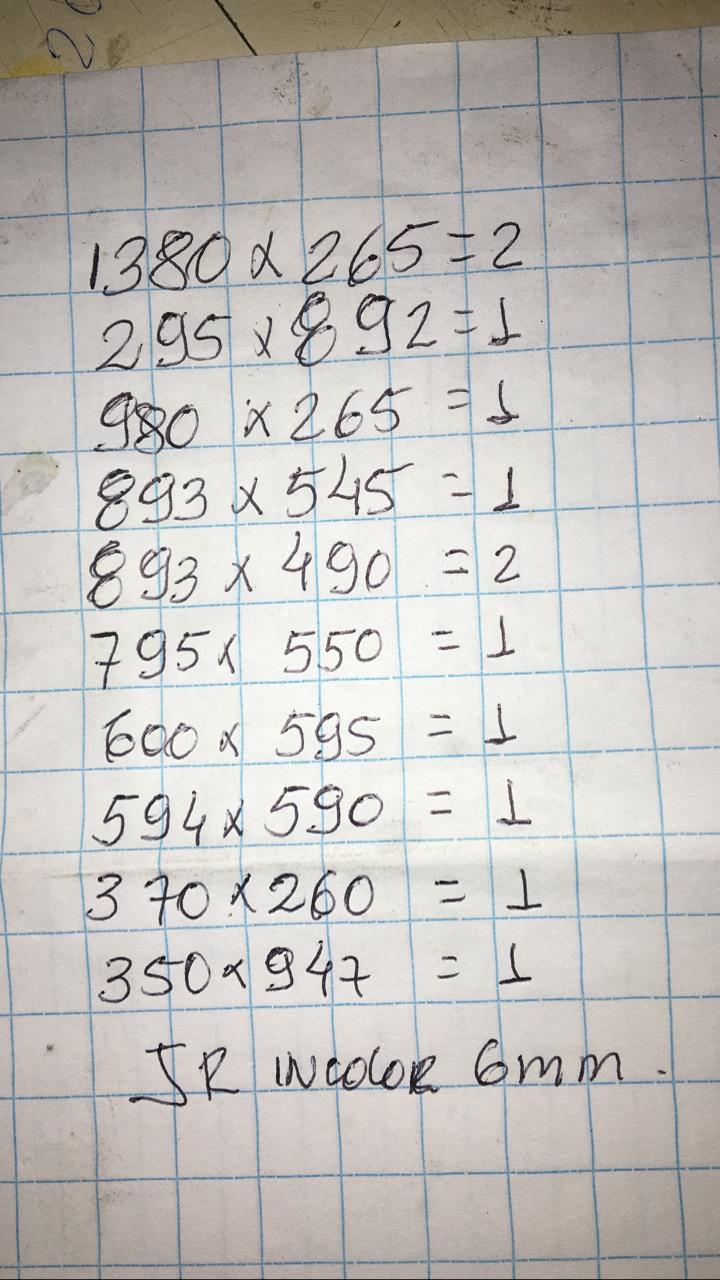 1380 x 265 = 2
295 x 892 = 1
980 x 265 = 1
893 x 545 = 1
893 x 490 = 2
795 x 550 = 1
600 x 595 = 1
594 x 590 = 1
370 x 260 = 1
350 x 947 = 1
JR INCOLOR 6mm.